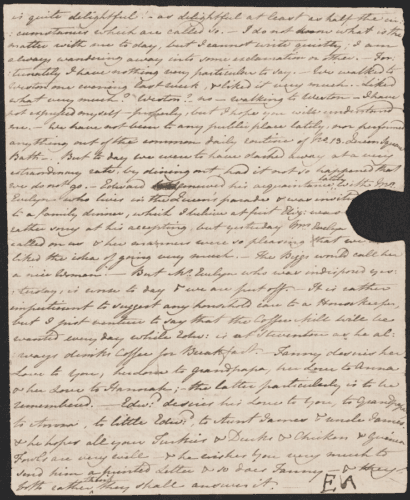 is quite delightful - as delightful at least as half the cir
cumstances which are called so. - I do not know what is the
matter with me to day, but I cannot write quietly; I am
always wandering away into some exclamation or other. For
tunately I have nothing very particular to say. - We walked to
Weston one evening last week, & liked it very much. - Liked
what very much? Weston? no - walking to Weston - I have
not expressed myself properly, but I hope you will understand
me. - We have not been to any public place lately, nor performed
anything out of the common daily routine of No. 13. Queen Square
Bath -. But to day we were to have dashed away at a very
extraordinary rate, by dining out, had it not so happened that
we do not go. - Edward renewed his acquaintance lately with Mr.
Evelyn who lives in the Queen's parade & was invited
to a family dinner, which I beleive at first Eliz: was
rather sorry at his accepting, but yesterday Mrs. Evelyn
called on us & her manners were so pleasing that we
liked the idea of going very much. - The Biggs would call her
a nice Woman. - But Mr. Evelyn who was indisposed yes-
terday, is worse to day & we are put off. - It is rather
impertinent to suggest any household care to a Housekeeper,
but I just venture to say that the Coffee Mill will be
wanted every day while Edw: is at Steventon as he al-
ways drinks Coffee for Breakfast. - Fanny desires her
Love to You, her Love to Grandpapa, her Love to Anna
& her Love to Hannah; the latter particularly is to be
remembered. - Edwd. desires his Love to you, to Grandpapa
to Anna, to little Edwd., to Aunt James & Uncle James,
& he hopes all your Turkies & Ducks & Chicken & Guinea
Fowls are very well - & he wishes You very much to
send him a printed Letter & so does Fanny - & they
both rather think they shall answer it. -
EA